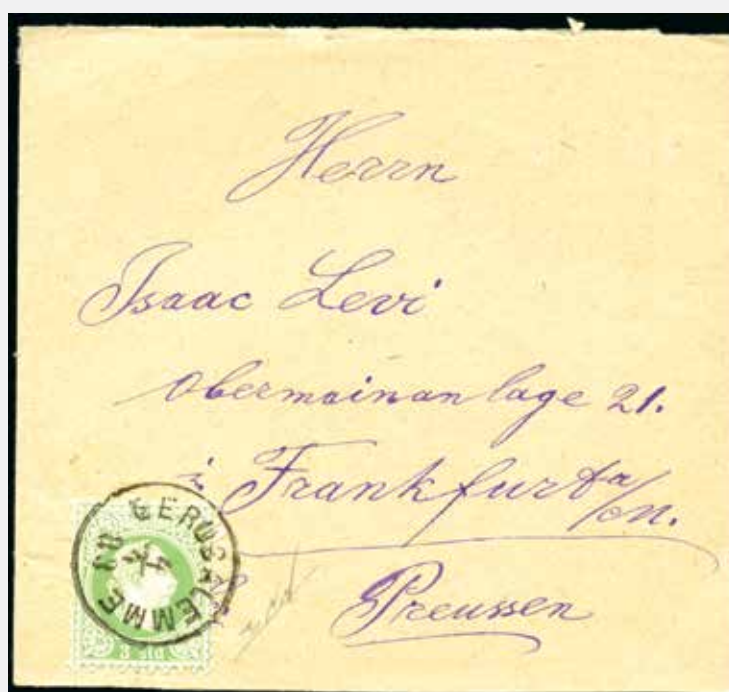 Herrn
Isaac Levi
Obermainanlage 21.
i Frankfurt a/M.
Preussen
GERUSALEMME
3 sld